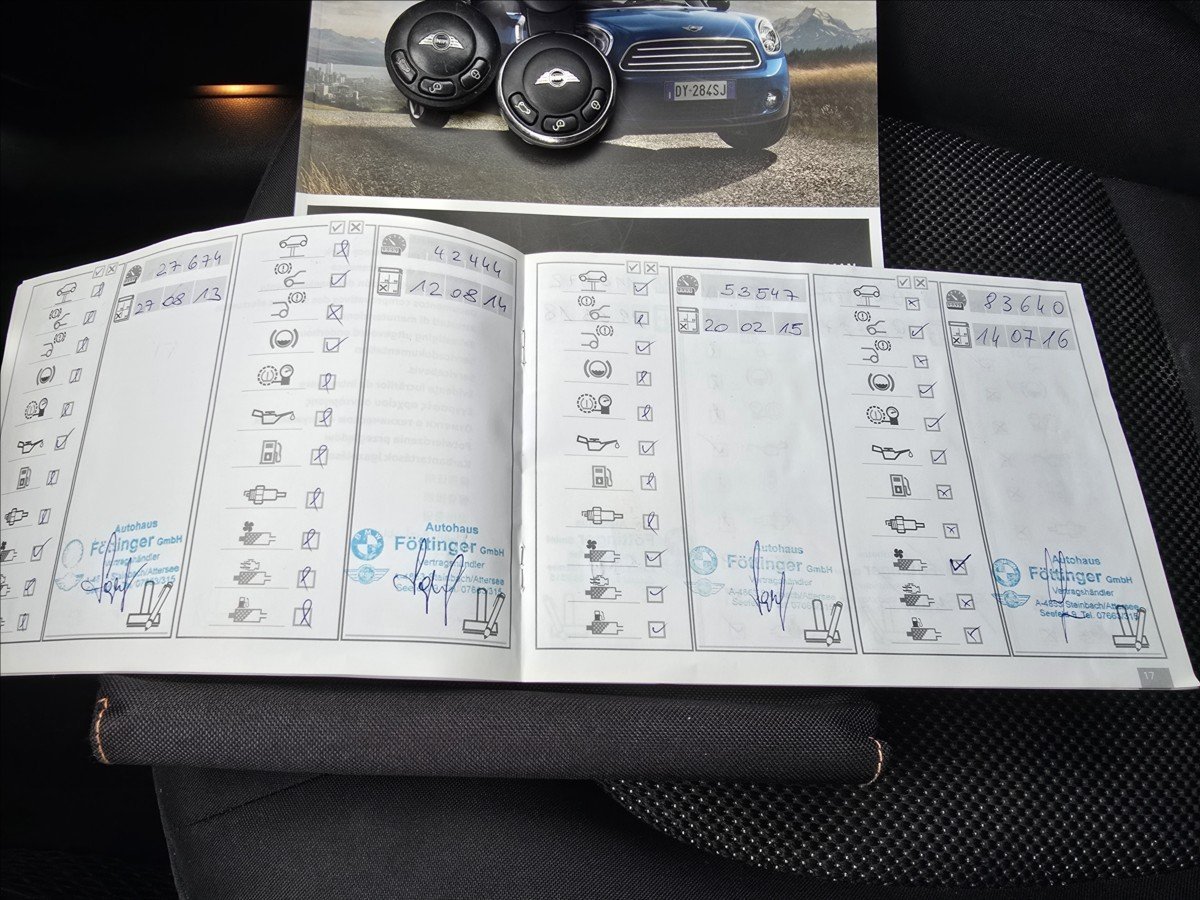 DY·284SJ
27 674
27 08 13
Autohaus
Föttinger GmbH
Vertragshändler
07663/315
42444
12 08 14
BMW
Autohaus
Föttinger GmbH
Vertragshändler
Steinbach/Attersee
07663/315
53547
20 02 15
Autohaus
Föttinger GmbH
Vertragshändler
83640
14 07 16
Autohaus
Föttinger GmbH
Vertragshändler
A-4853 Steinbach/Attersee
Seefeld 9, Tel. 07663/315
17